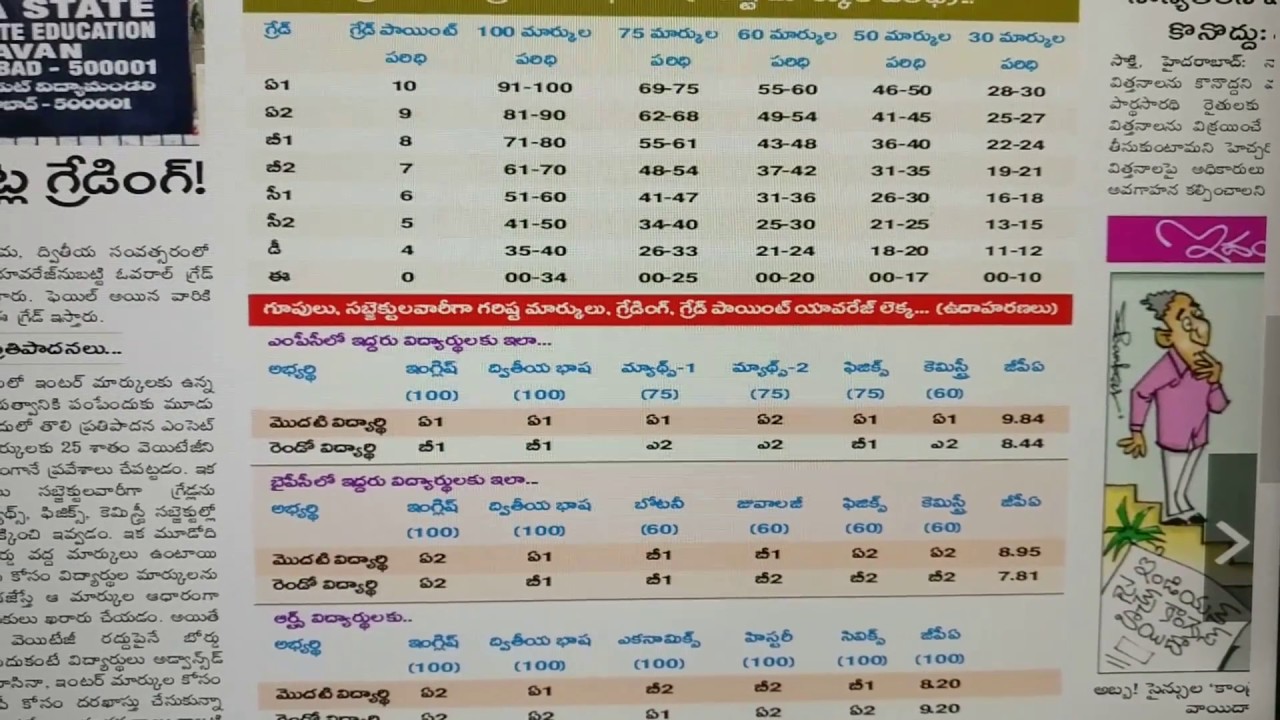 STATE
TE EDUCATION
AVAN
BAD - 500001
విద్యామండలి
బాద్ - 500001
గ్రేడింగ్!
ద్వితీయ సంవత్సరంలో
ఓవరాల్ గ్రేడ్
ఫెయిల్ అయిన వారికి
గ్రేడ్ ఇస్తారు.
ఇంటర్ మార్కులకు ఉన్న
పంపేందుకు మూడు
తొలి ప్రతిపాదన ఎంసెట్
25 శాతం వెయిటేజీని
ప్రవేశాలు చేపట్టడం. ఇక
సబ్జెక్టులవారీగా గ్రేడ్లను
ఫిజిక్స్, కెమిస్ట్రీ సబ్జెక్టుల్లో
ఇవ్వడం. ఇక మూడోది
వద్ద మార్కులు ఉంటాయి
కోసం విద్యార్థుల మార్కులను
ఆ మార్కుల ఆధారంగా
ఖరారు చేయడం. అయితే
వెయిటేజీ రద్దుపైనే బోర్డు
విద్యార్థులు అడ్వాన్స్‌డ్
ఇంటర్ మార్కుల కోసం
కోసం దరఖాస్తు చేసుకున్నా
గ్రేడ్ గ్రేడ్ పాయింట్ 100 మార్కుల 75 మార్కుల 60 మార్కుల 50 మార్కుల 30 మార్కుల
పరిధి పరిధి పరిధి పరిధి పరిధి పరిధి
ఏ1 10 91-100 69-75 55-60 46-50 28-30
ఏ2 9 81-90 62-68 49-54 41-45 25-27
బీ1 8 71-80 55-61 43-48 36-40 22-24
బీ2 7 61-70 48-54 37-42 31-35 19-21
సీ1 6 51-60 41-47 31-36 26-30 16-18
సీ2 5 41-50 34-40 25-30 21-25 13-15
డీ 4 35-40 26-33 21-24 18-20 11-12
ఈ 0 00-34 00-25 00-20 00-17 00-10
గ్రూపులు, సబ్జెక్టులవారీగా గరిష్ట మార్కులు, గ్రేడింగ్, గ్రేడ్ పాయింట్ యావరేజ్ లెక్క... (ఉదాహరణలు)
ఎంపీసీలో ఇద్దరు విద్యార్థులకు ఇలా...
అభ్యర్థి ఇంగ్లిష్ ద్వితీయ భాష మ్యాథ్స్-1 మ్యాథ్స్-2 ఫిజిక్స్ కెమిస్ట్రీ జీపీఏ
(100) (100) (75) (75) (75) (60)
మొదటి విద్యార్థి ఏ1 ఏ1 ఏ1 ఏ2 ఏ1 ఏ1 9.84
రెండో విద్యార్థి బీ1 బీ1 ఎ2 ఎ2 బీ1 ఎ2 8.44
బైపీసీలో ఇద్దరు విద్యార్థులకు ఇలా...
అభ్యర్థి ఇంగ్లిష్ ద్వితీయ భాష బోటనీ జువాలజీ ఫిజిక్స్ కెమిస్ట్రీ జీపీఏ
(100) (100) (60) (60) (60) (60)
మొదటి విద్యార్థి ఏ2 ఏ1 బీ1 బీ1 ఏ2 ఏ2 8.95
రెండో విద్యార్థి ఏ2 బీ1 బీ1 బీ2 బీ2 బీ2 7.81
ఆర్ట్స్ విద్యార్థులకు..
అభ్యర్థి ఇంగ్లిష్ ద్వితీయ భాష ఎకనామిక్స్ హిస్టరీ సివిక్స్ జీపీఏ
(100) (100) (100) (100) (100) (100)
మొదటి విద్యార్థి ఏ2 ఏ1 బీ2 బీ2 బీ1 8.20
రెండో విద్యార్థి ఏ2 ఏ2 ఏ1 ఏ2 ఏ2 9.20
కొనొద్దు:
సాక్షి, హైదరాబాద్:
విత్తనాలను కొనొద్దని
పార్థసారథి రైతులకు
విత్తనాలను విక్రయించే
తీసుకుంటామని
విత్తనాలపై అధికారులు
అవగాహన కల్పించాలని
ఇండియన్
సైన్స్ కాంగ్రెస్
వాయిదా
అబ్బ! సైన్సుల
వాయిదా